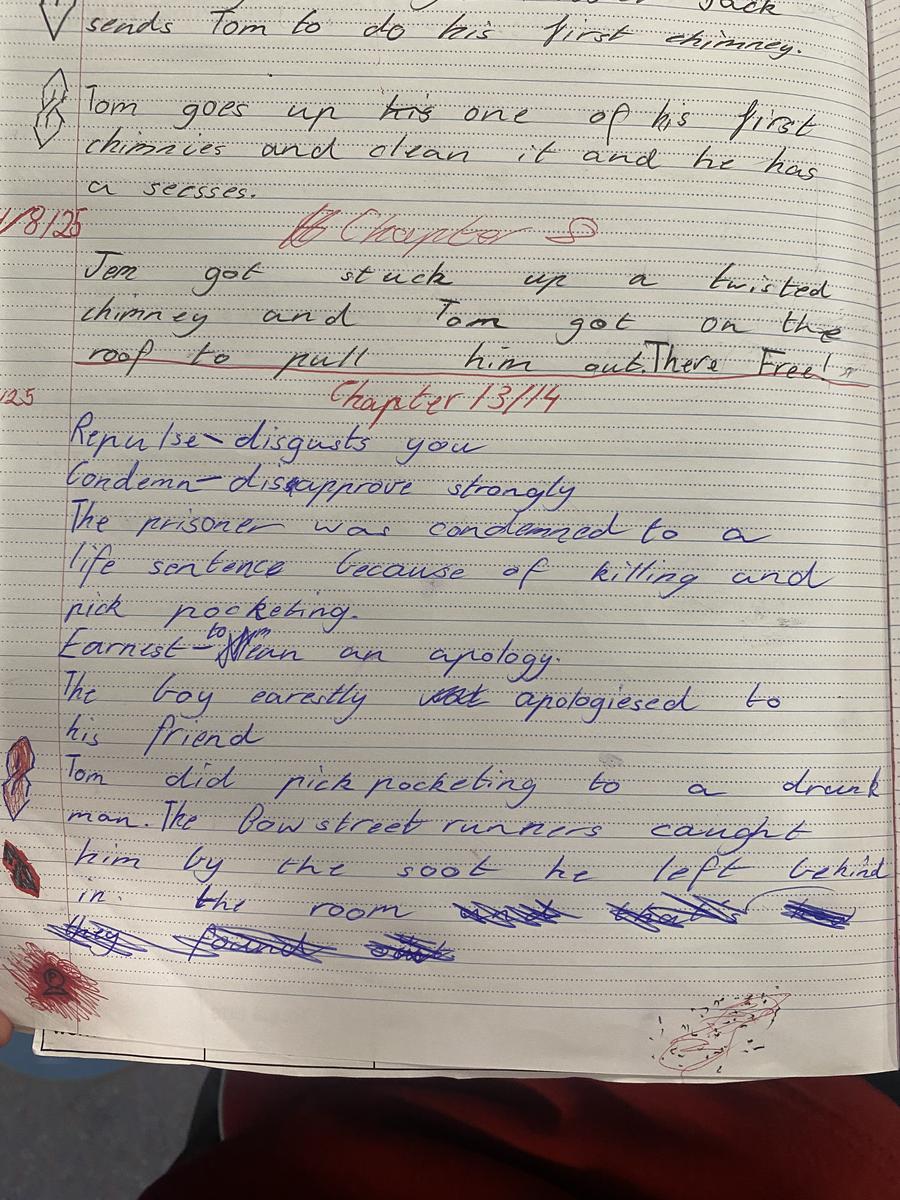 Jack
sends Tom to do his first chimney.
Tom goes up his one of his first
chimnies and clean it and he has
a secsses.
1/8/25
Chapter 8
Jem got stuck up a twisted
chimney and Tom got on the
roof to pull him out. There Free!
125
Chapter 13/14
Repulse - disgusts you
Condemn - disapprove strongly
The prisoner was condemned to a
life sentence because of killing and
pick pocketing.
Earnest - to mean an apology.
The boy earestly apologiesed to
his friend
Tom did pick pocketing to a drunk
man. The Bow street runners caught
him by the soot he left behind
in the room and that's how
they found out